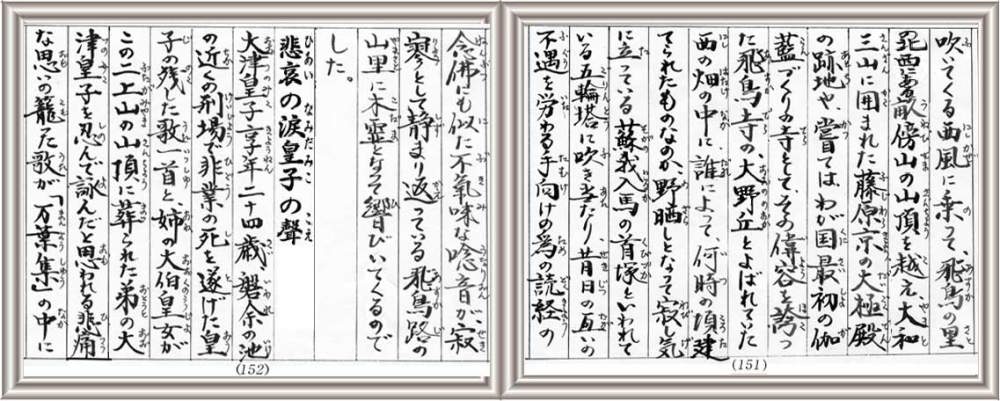 吹いてくる西風に乗って、飛鳥の里
畝傍山の山頂を越え、大和
三山に囲まれた藤原京の大極殿
の跡地や、嘗ては、わが国最初の伽
藍づくりの寺として、その偉容を誇っ
た飛鳥寺の大野丘とよばれていた
西の畑の中に、誰によって、何時の頃建
てられたものなのか、野晒しとなって寂し気
に立っている蘇我入鹿の首塚といわれて
いる五輪塔に吹き当たり、昔日の互いの
不遇を労わる手向けの為の読経の
(151)
念佛にも似た不氣味な唸音が寂
寥として静まり返っている飛鳥路の
山里に木霊となって響びいてくるので
した。
悲哀の涙皇子の聲
大津皇子享年二十四歳、磐余の池
の近くの刑場で非業の死を遂げた皇
子の残した歌一首と、姉の大伯皇女が
この二上山の山頂に葬られた弟の大
津皇子を忍んで詠んだと思われる悲痛
な思いの籠った歌が「万葉集」の中に
(152)